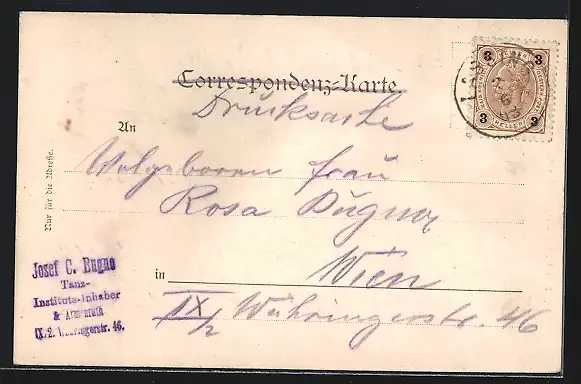 Correspondenz-Karte.
Drucksache
An
Wolgeboren Frau
Rosa Bugno
in Wien
IX/2 Währingerstr. 46
Nur für die Adresse.
Josef C. Bugno
Tanz-
Instituts-Inhaber
&
IX.2. Währingerstr. 46.
3 3
3 HELLER 3